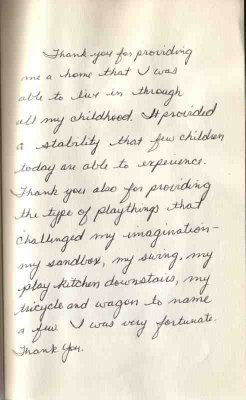 Thank you for providing
me a home that I was
able to live in through
all my childhood. It provided
a stability that few children
today are able to experience.
Thank you also for providing
the type of playthings that
challenged my imagination-
my sandbox, my swing, my
play kitchen downstairs, my
tricycle and wagon to name
a few I was very fortunate.
Thank You.